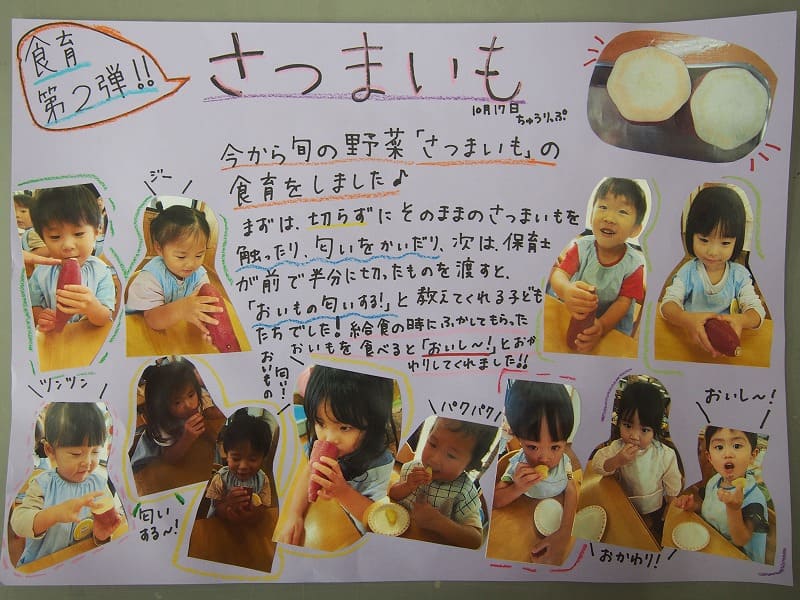 食育
第2弾!!
さつまいも
10月17日
ちゅうりっぷ
今から旬の野菜「さつまいも」の
食育をしました♪
まずは、切らずにそのままのさつまいもを
触ったり、匂いをかいだり、次は、保育士
が前で半分に切ったものを渡すと、
「おいもの匂いする!」と教えてくれる子ども
たちでした!給食の時にふかしてもらった
おいもを食べると「おいし〜!」とおか
わりしてくれました!!
ジー
ツンツン
匂い
する〜!
おいもの
匂い!
パクパク
おかわり!
おいし〜!